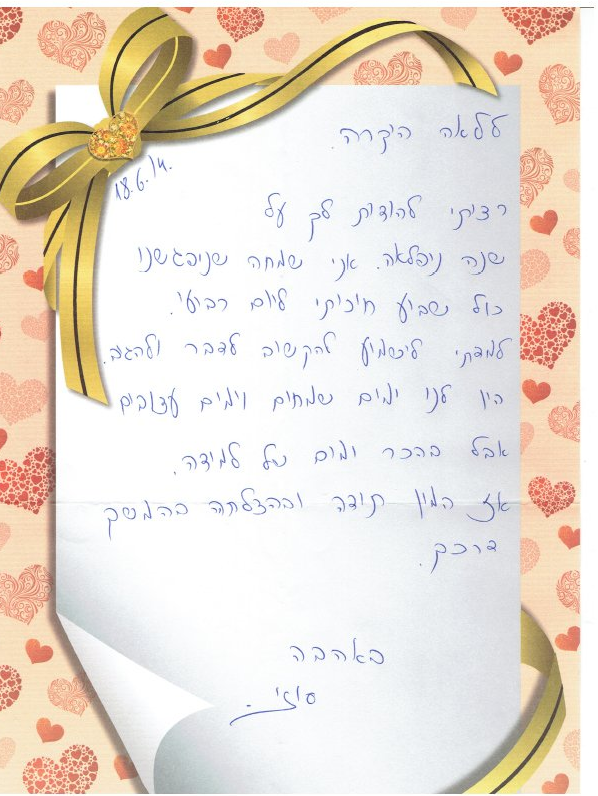 ללאה היקרה.
18.6.14.
רציתי להודית לך על
שנה ניפלאה. אני שמחה שניפגשנו
כול שביע חיכיתי ליום רביעי.
למדתי לישמיע להקשיב לדבר ולהגיב.
היו לנו ימים שמחים וימים עצובים
אבל בהכר ימים של למידה.
אז המון תודה ובהצלחה בהמשך
דרכך.
באהבה
סיזי.